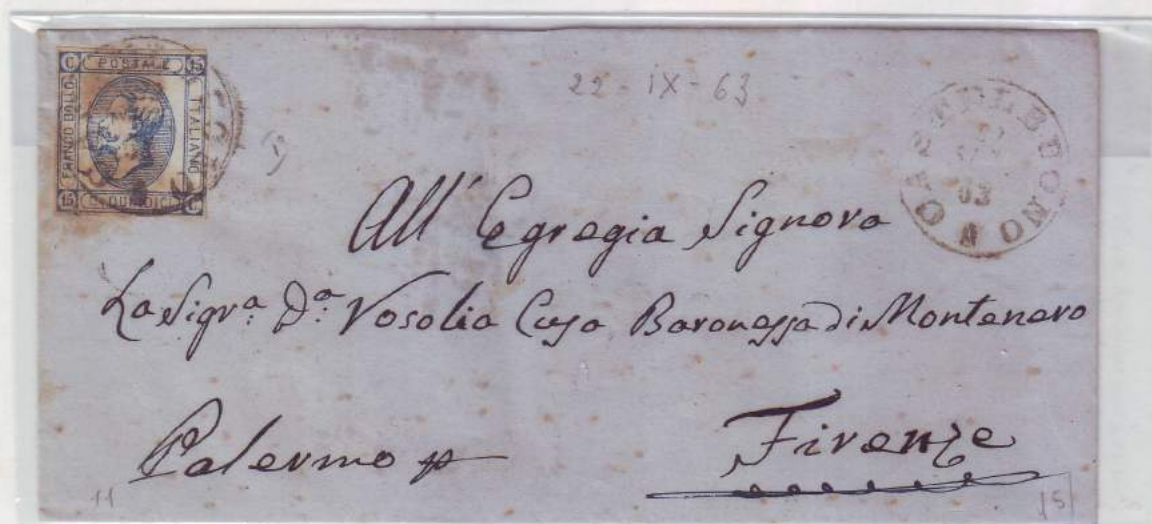 C POSTALE 15
FRANCO BOLLO
ITALIANO
15 C. QUINDICI C
22 - IX - 63
CASTELBUONO
63
All' Egregia Signora
La Sigr.a D.a Rosolia Cupa Baronessa di Montenero
Palermo
Firenze
11
15